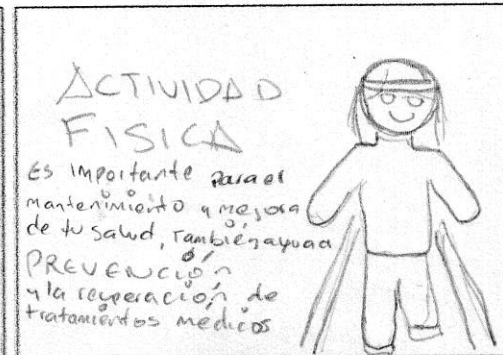 ACTIVIDAD
FISICA
Es importante para el
mantenimiento y mejora
de tu salud, También ayuda
PREVENCIÓN
y la recuperación de
tratamientos médicos